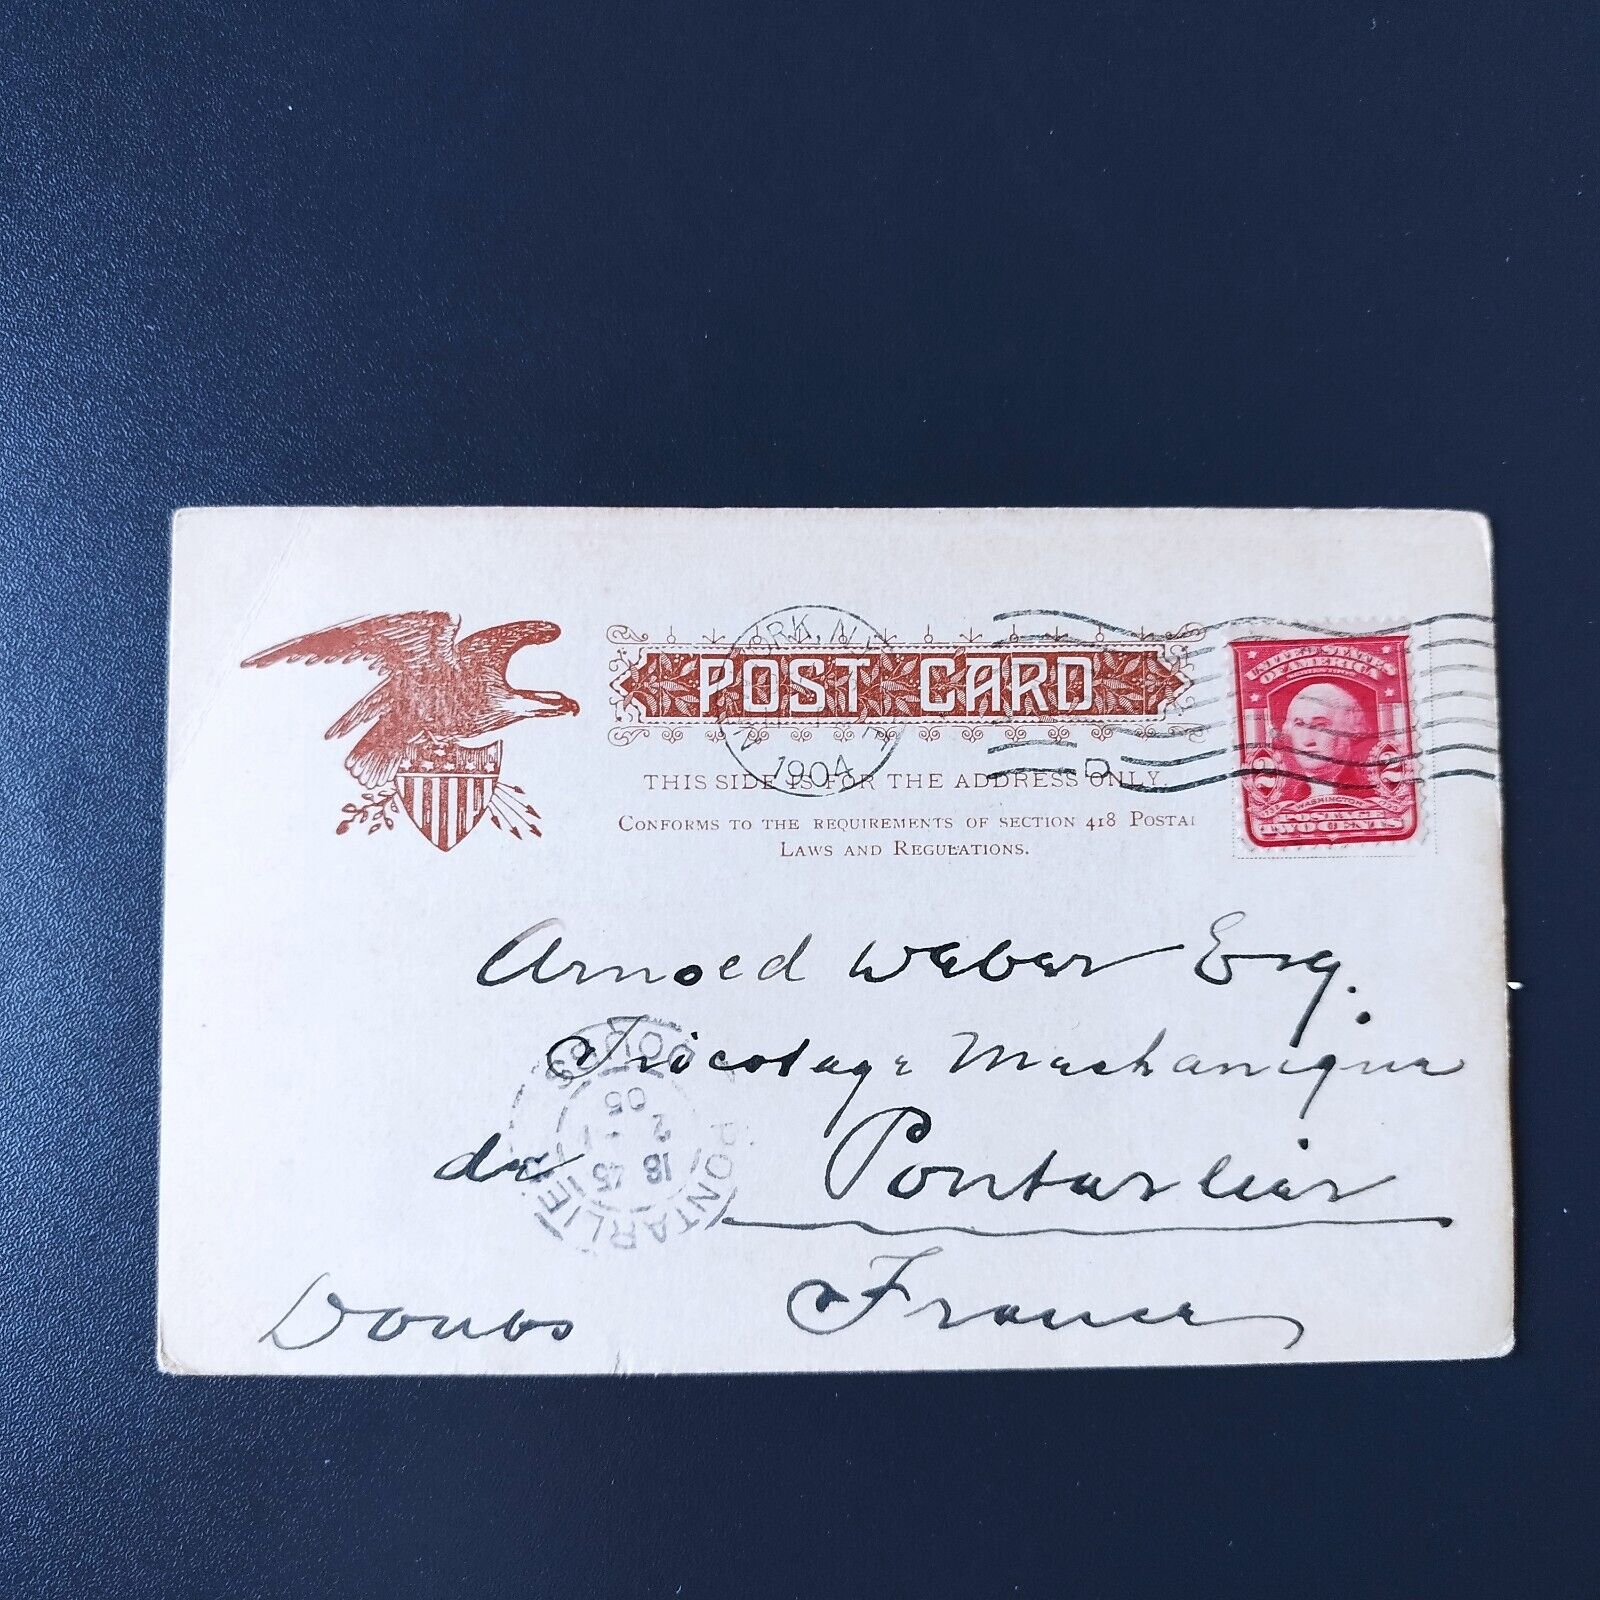 YORK, N.Y.
1904
D
POST CARD
UNITED STATES
OF AMERICA
2 2
WASHINGTON
POSTAGE
TWO CENTS
THIS SIDE IS FOR THE ADDRESS ONLY.
CONFORMS TO THE REQUIREMENTS OF SECTION 418 POSTAL
LAWS AND REGULATIONS.
Arnold Weber Esq.
Tricotage Mechanique
de Pontarlier
Doubs France
PONTARLIER
18 45
2 - 1
05
DOUBS